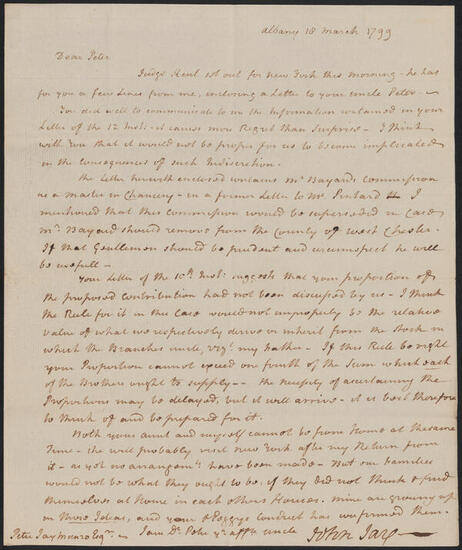 Albany 18 March 1799
Dear Peter
Judge Kent set out for New York this morning - he has
for you a few Lines from me, enclosing a Letter to your uncle Peter -
You did well to communicate to me the Information contained in your
Letter of the 12 Inst: - it causes more Regret than Surprise - I think
with you that it would not be proper for us to become implicated
in the consequences of such Indiscretion.
The Letter herewith enclosed contains Mr Bayards Commission
as a master in Chancery - in a former Letter to Mr Pintard I
mentioned that this commission would be superseded in Case
Mr Bayard should remove from the County of West Chester.
If that Gentleman should be prudent and circumspect he will
be usefull -
Your Letter of the 10th Inst: suggests that your proportion of
the proposed contribution had not been discussed by us - I think
the Rule for it in this Case would not improperly be the relative
value of what we respectively derive or inherit from the Stock in
which the Branches unite, vizt. my father - If this Rule be right
your Proportion cannot exceed one fourth of the Sum which each
of the Brothers ought to supply - - the necessity of ascertaining the
Proportions may be delayed, but it will arrive - it is best therefore
to think of and be prepared for it.
Both your aunt and myself cannot be from Home at the same
Time - she will probably visit New York after my Return from
it - as yet no arrangemts have been made - Our Families
would not be what they ought to be, if they did not think & find
themselves at Home in each others Houses. mine are growing up
in those Ideas, and your & Peggys Conduct has confirmed them.
I am Dr Peter yr afft. uncle
John Jay
Peter Jay Munro Esqr.